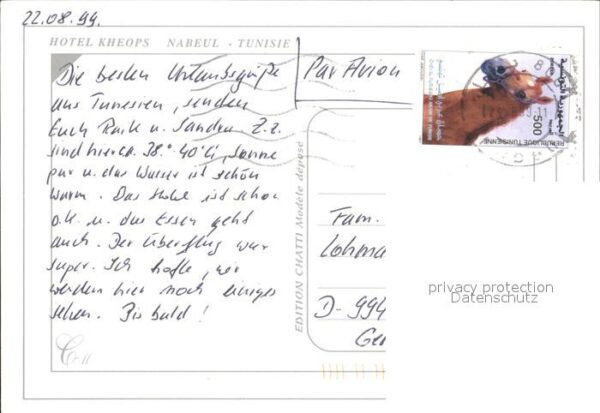 22.08.99.
HOTEL KHEOPS NABEUL - TUNISIE
Par Avion
Die besten Urlaubsgrüße
aus Tunesien, senden
Euch Raik u. Sandra. Z.Z.
sind hier ca. 38° - 40°C, Sonne
pur u. das Wasser ist schön
warm. Das Hotel ist schon
o.k. u. das Essen geht
auch. Der Überflug war
super. Ich hoffe, wir
werden hier noch einiges
sehen. Bis bald!
EDITION CHATTI Modèle déposé
500
REPUBLIQUE TUNISIENNE
Fam.
Lohma
D-994
Ge
privacy protection
Datenschutz